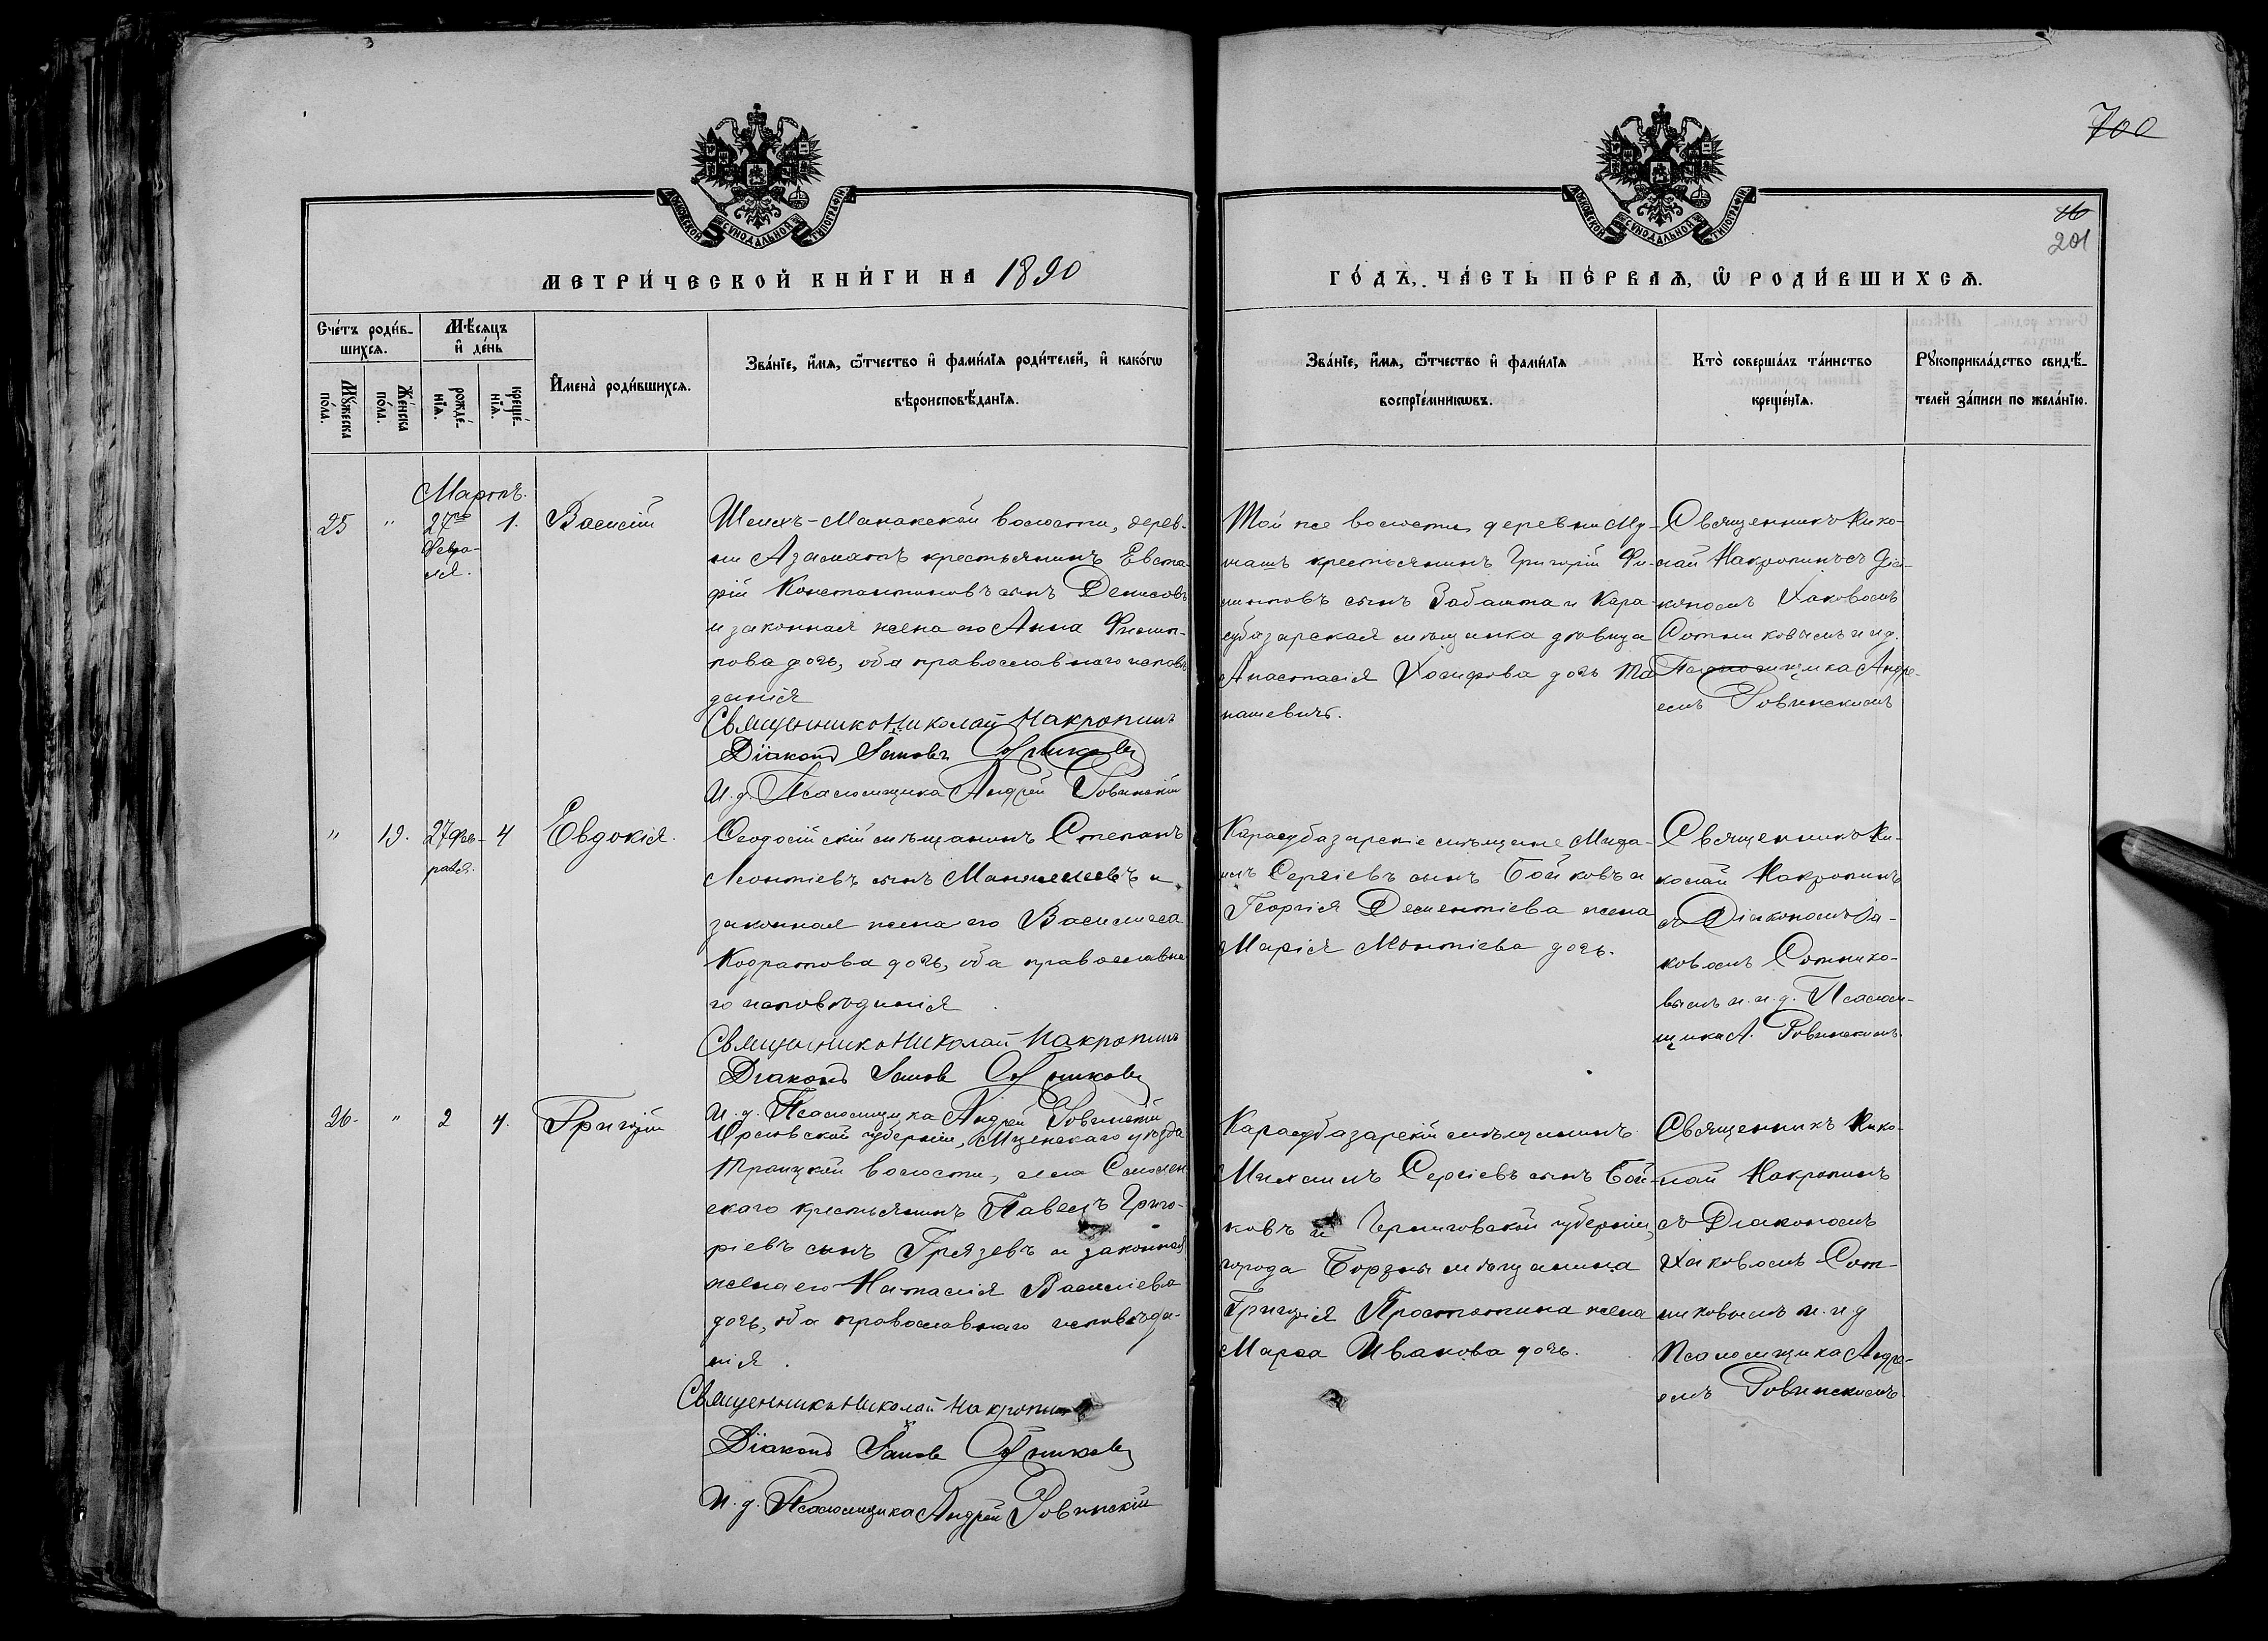 700
МОСКОВСКОЙ СѴНОДАЛЬНОЙ ТИПОГРАФІИ
МОСКОВСКОЙ СѴНОДАЛЬНОЙ ТИПОГРАФІИ
16
201
МЕТРИ́ЧЕСКОЙ КНИ́ГИ НА 1890
ГО́ДЪ, ЧА́СТЬ ПЕ́РВАѦ, Ѡ҆ РОДИ́ВШИХСѦ.
Сче́тъ роди́в-
шихсѧ.
Мѣ́сѧцъ
и҆ де́нь
Мꙋ́жеска
по́ла.
Же́нска
по́ла.
рожде́-
нїѧ.
креще́-
нїѧ.
И҆мена̀ роди́вшихсѧ.
Зва́нїе, и҆́мѧ, ѻ҆́тчество и҆ фами́лїѧ роди́телей, и҆ како́гѡ
вѣроисповѣ́данїѧ.
Зва́нїе, и҆́мѧ, ѻ҆́тчество и҆ фами́лїѧ
воспрїе́мникѡвъ.
Кто̀ соверша́лъ та́инство
креще́нїѧ.
Рꙋкоприкла́дство свидѣ́-
телей за́писи по жела́нїю.
Мартъ.
25 " 27го 1. Василій
Февра-
ля.
Шейхъ-Манакской волости, дерев-
ни Азаматъ крестьянинъ Евста-
фій Константиновъ сынъ Денисовъ
и законная жена его Анна Филип-
пова дочь, оба православнаго исповѣ-
данія
Священникъ Николай Макропинъ
Діаконъ Іаковъ Сотниковъ
И. д. Псаломщика Андрей Ровинскій
Той же волости, деревни Му-
ташъ крестьянинъ Григорій Фи-
липповъ сынъ Забашта и Кара-
субазарская мѣщанка дѣвица
Анастасія Іосифова дочь Ма-
нашевичъ.
Священникъ Нико-
лай Макропинъ съ Діа-
кономъ Іаковомъ
Сотниковымъ и и. д.
Псаломщика Андре-
емъ Ровинскимъ
" 19. 27 Фев- 4 Евдокія.
раля.
Ѳеодосійскій мѣщанинъ Степанъ
Леонтіевъ сынъ и
законная жена его Василиса
Кодратова дочь, оба православна-
го исповѣданія
Священникъ Николай Макропинъ
Діаконъ Іаковъ Сотниковъ
И. д. Псаломщика Андрей Ровинскій
Карасубазарскіе мѣщане Миха-
илъ Сергіевъ сынъ Бойковъ и
Георгія Дементіева жена
Марія Леонтіева дочь.
Священникъ Ни-
колай Макропинъ
съ Діакономъ Іа-
ковомъ Сотнико-
вымъ и и. д. Псалом-
щика А. Ровинскимъ.
26. " 2 4. Григорій
Орловской губерніи, Мценскаго уѣзда
Троицкой волости, села Смолен-
скаго крестьянинъ Павелъ Григо-
ріевъ сынъ Грязевъ и законная
жена его Наталія Василіева
дочь, оба православнаго исповѣда-
нія.
Священникъ Николай Макропинъ
Діаконъ Іаковъ Сотниковъ
И. д. Псаломщика Андрей Ровинскій
Карасубазарскій мѣщанинъ
Михаилъ Сергіевъ сынъ Бой-
ковъ и Черниговской губерніи,
города Борзны мѣщанина
Григорія жена
Марѳа Иванова дочь.
Священникъ Нико-
лай Макропинъ
съ Діакономъ
Іаковомъ Сот-
никовымъ и и. д
Псаломщика Андре-
емъ Ровинскимъ.